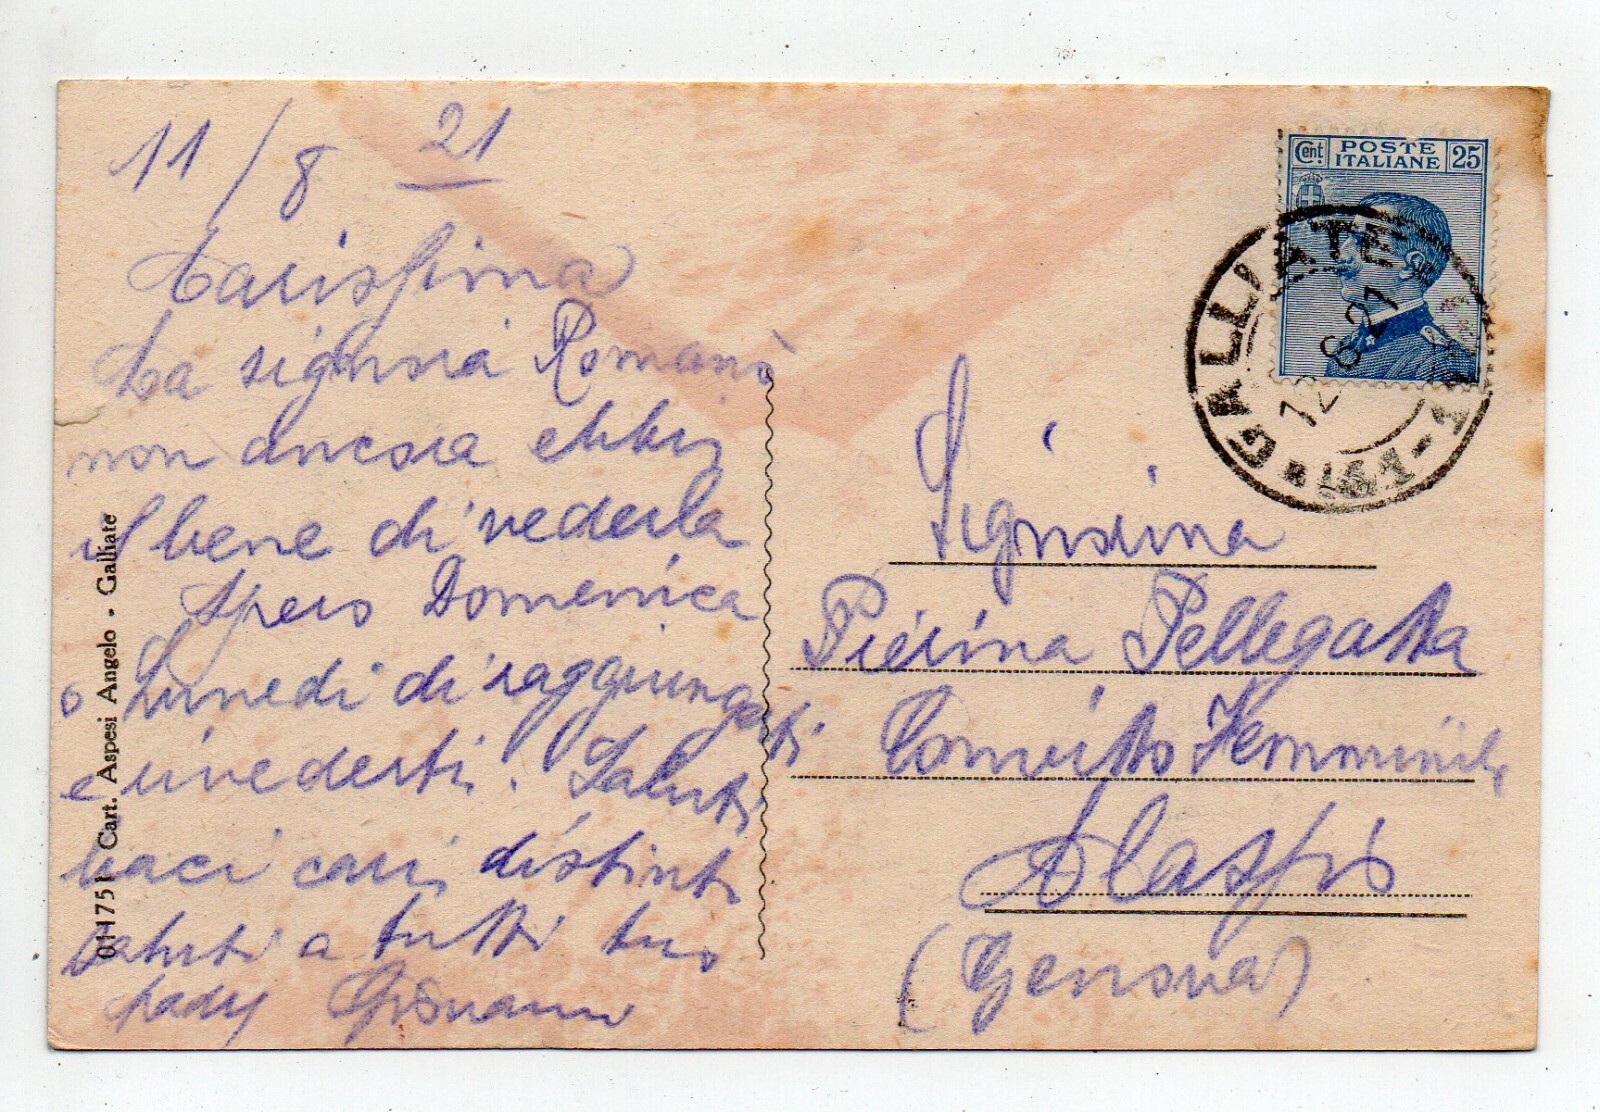 11/8 21
Carissima
La signora Romanò
non ancora ebbi
il bene di vederla
Spero Domenica
o Lunedi di raggiungerti
e rivederti. Saluti
baci cari, distinti
saluti a tutti tuo
Giovanni
01175 Cart. Aspesi Angelo - Galliate
Cent. POSTE ITALIANE 25
GALLIATE
12 8 21
Signorina
Pierina Pellegatta
Convitto Femminile
Alassio
(Genova)